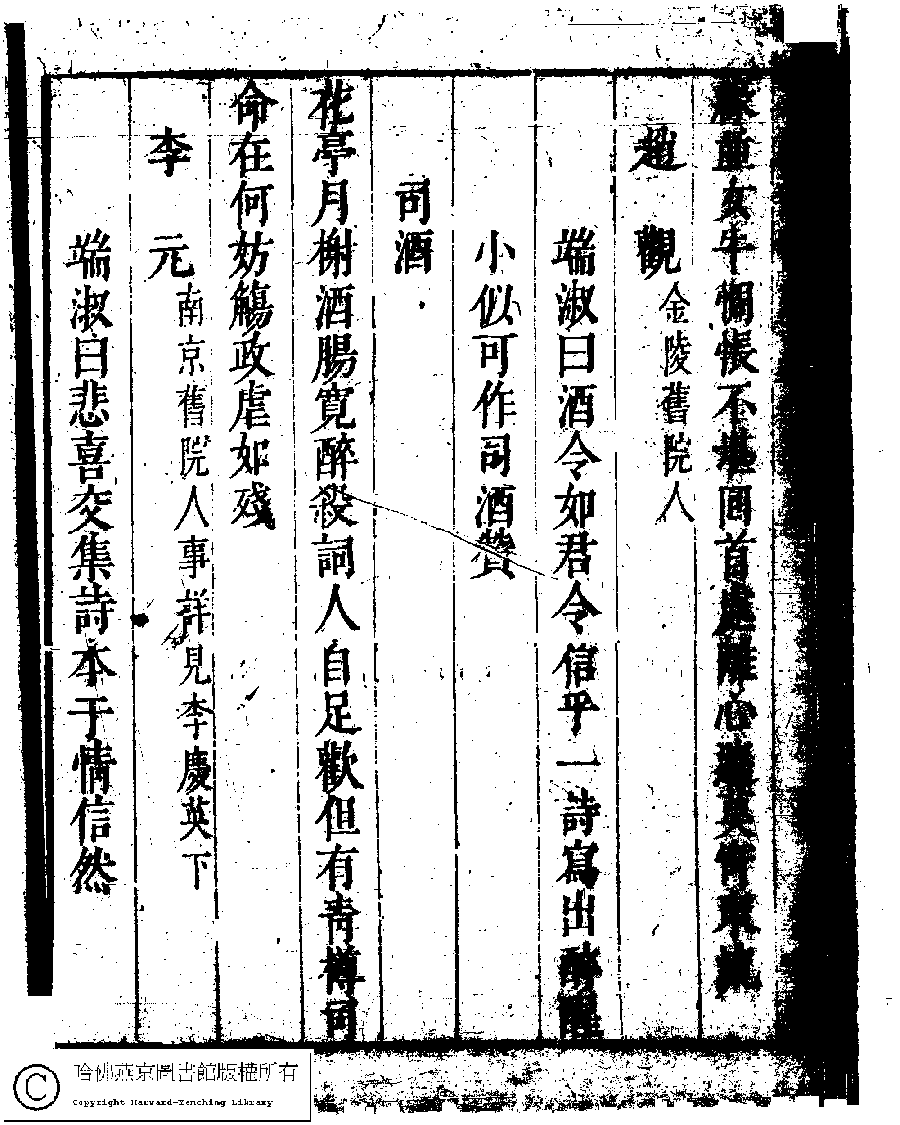 女牛惆悵不堪回首處
趙　觀 金陵舊院人
端淑曰酒令如君令信乎一詩寫出醉
小似可作司酒贊
司酒
花亭月榭酒腸寬醉殺詞人自足歡但有青樽司
命在何妨觴政虐如殘
李　元 南京舊院人事詳見李慶英下
端淑曰悲喜交集詩本于情信然
哈佛燕京圖書館版權所有
Copyright Harvard-Yenching Library